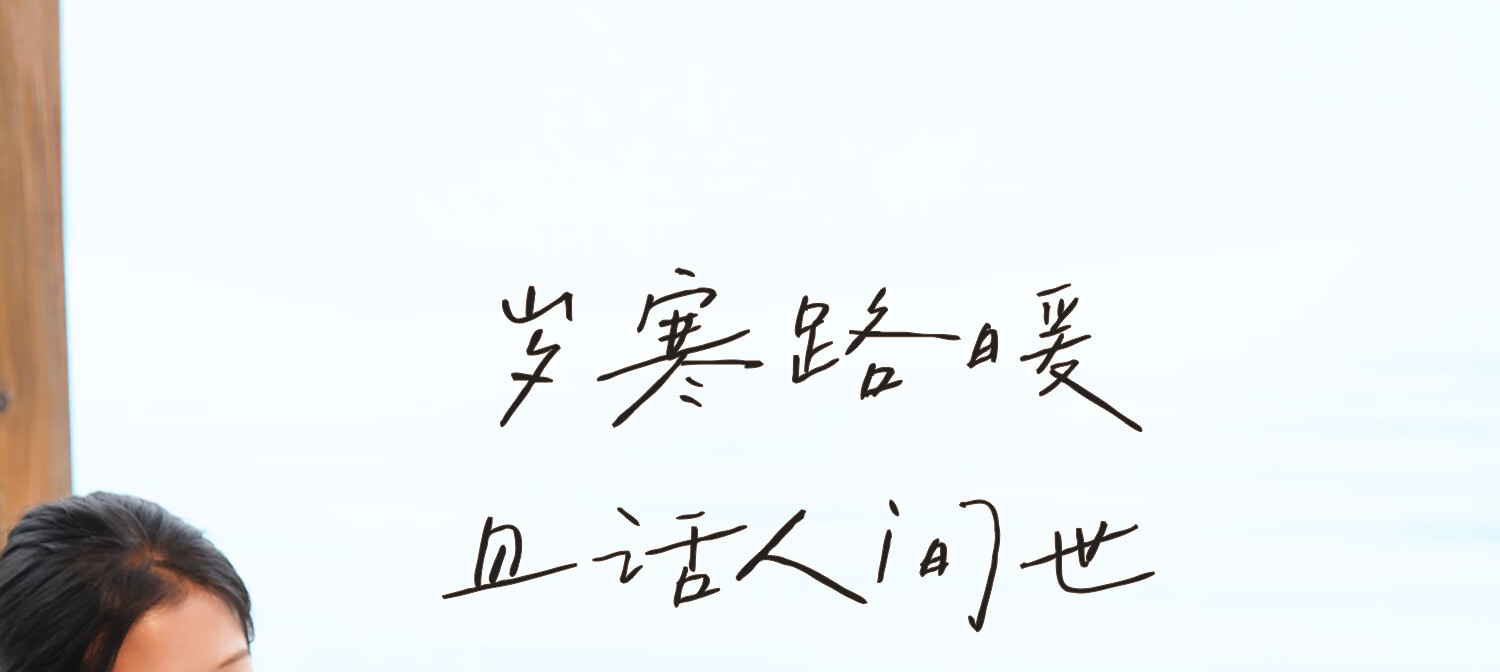 岁寒路暖
且话人间世